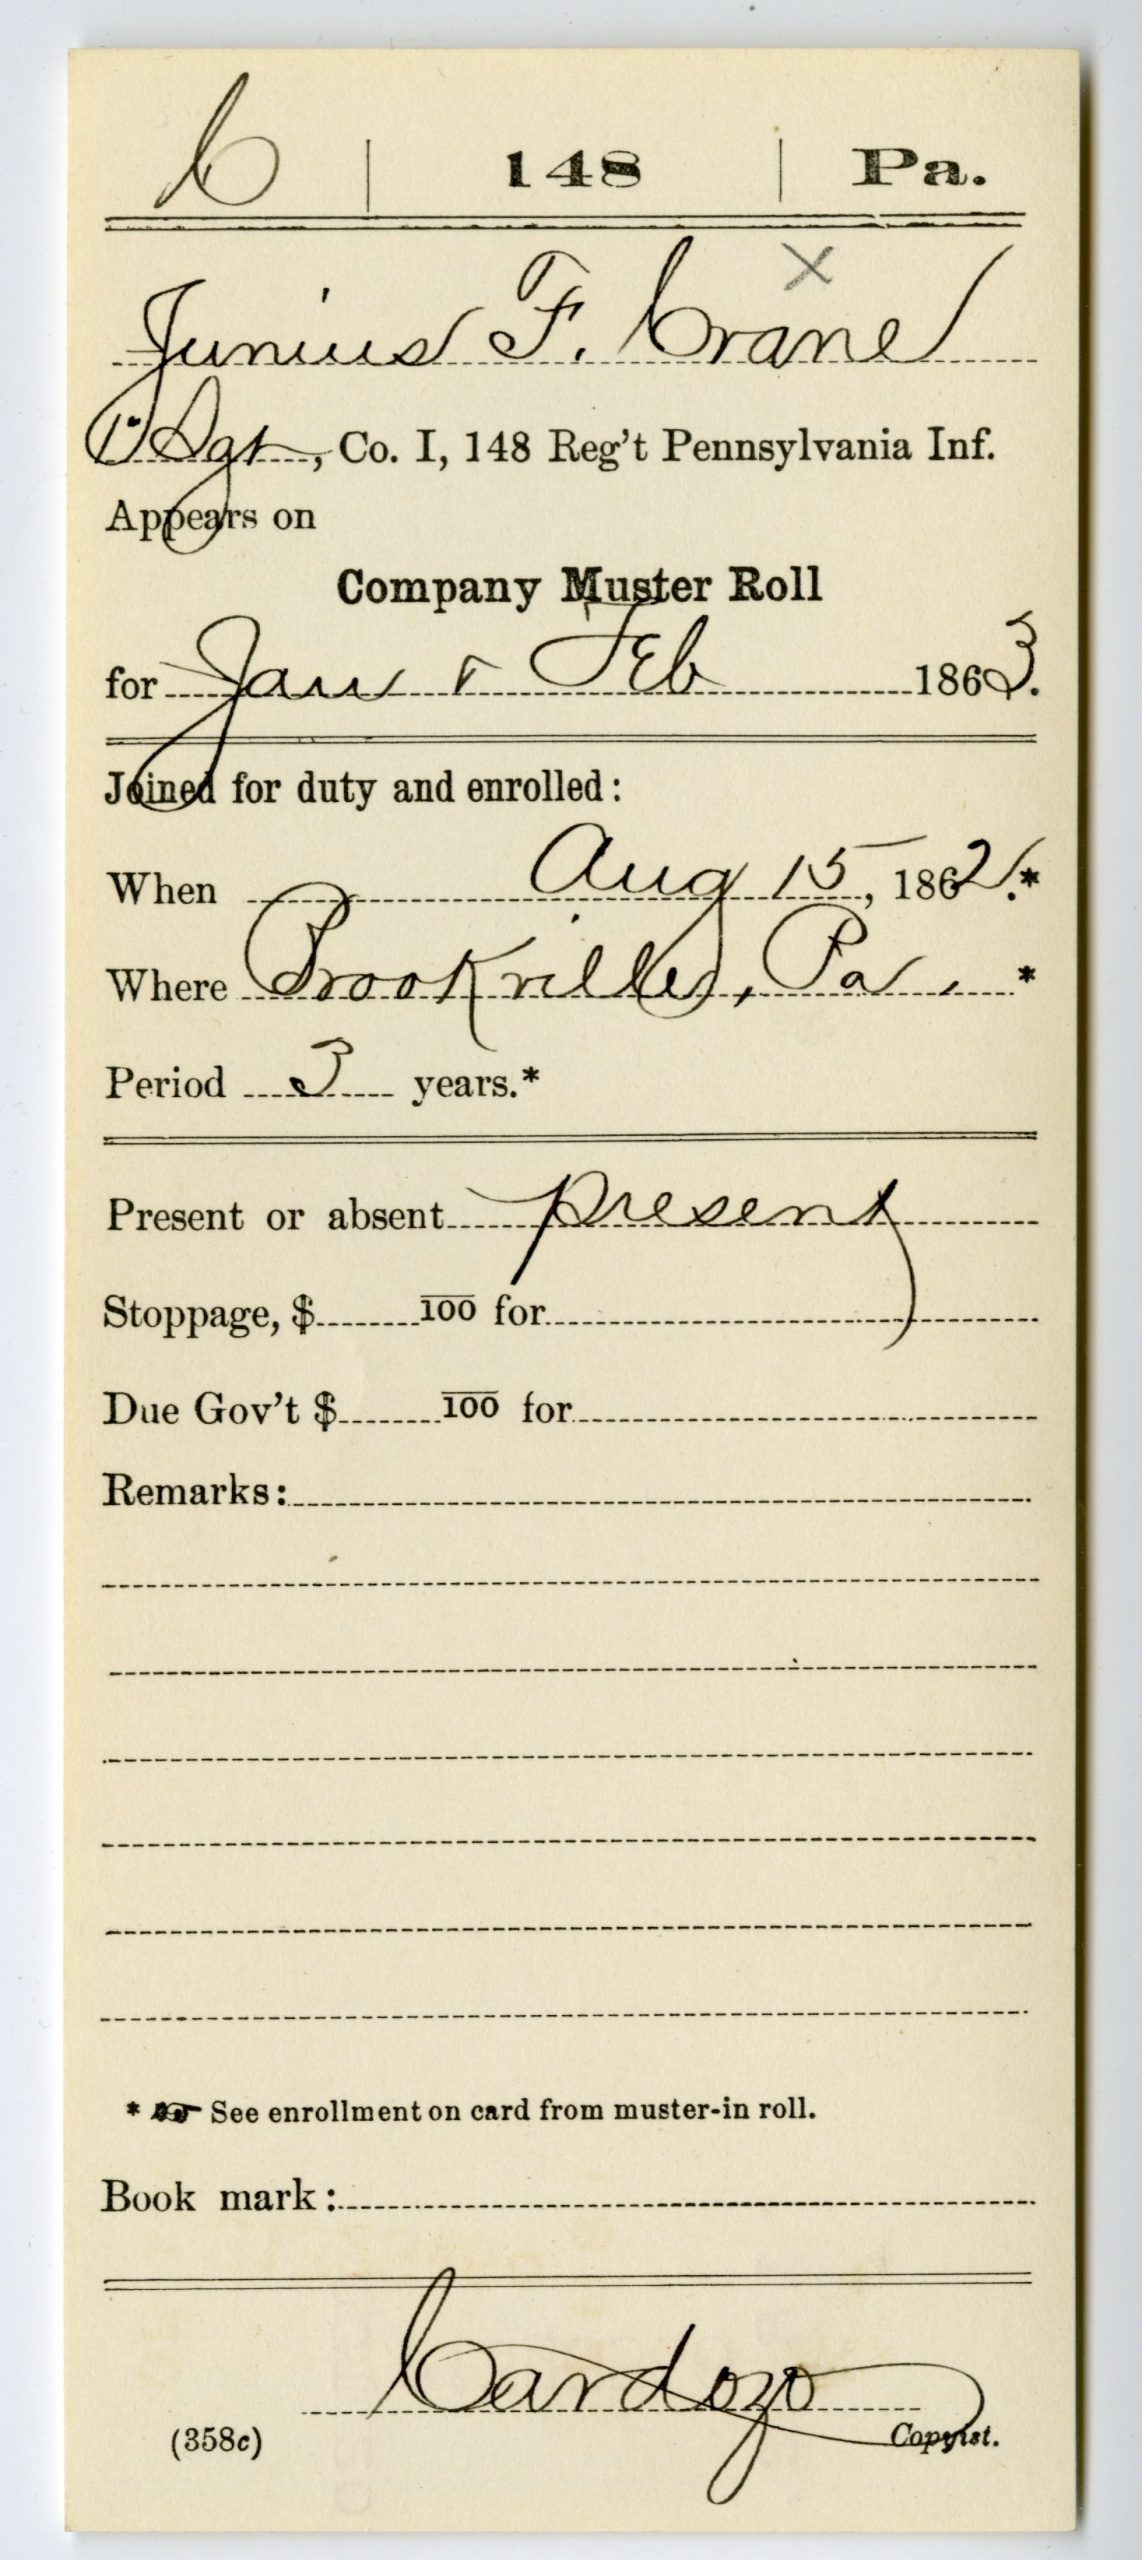 C | 148 | Pa.
x
Junius F. Crane
1" Sgt, Co. I, 148 Reg't Pennsylvania Inf.
Appears on
Company Muster Roll
for Jan & Feb 1863.
Joined for duty and enrolled:
When Aug 15, 1862.*
Where Brookville, Pa. *
Period 3 years.*
Present or absent Present
Stoppage, $ 100 for
Due Gov't $ 100 for
Remarks:
* ☞ See enrollment on card from muster-in roll.
Book mark:
Cardozo
(358c) Copyist.